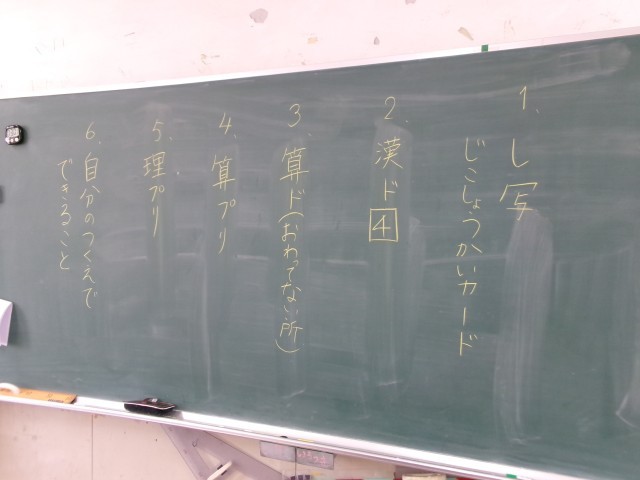 1. し写
じこしょうかいカード
2. 漢ド4
3. 算ド(おわってない所)
4. 算プリ
5. 理プリ
6. 自分のつくえで
できること